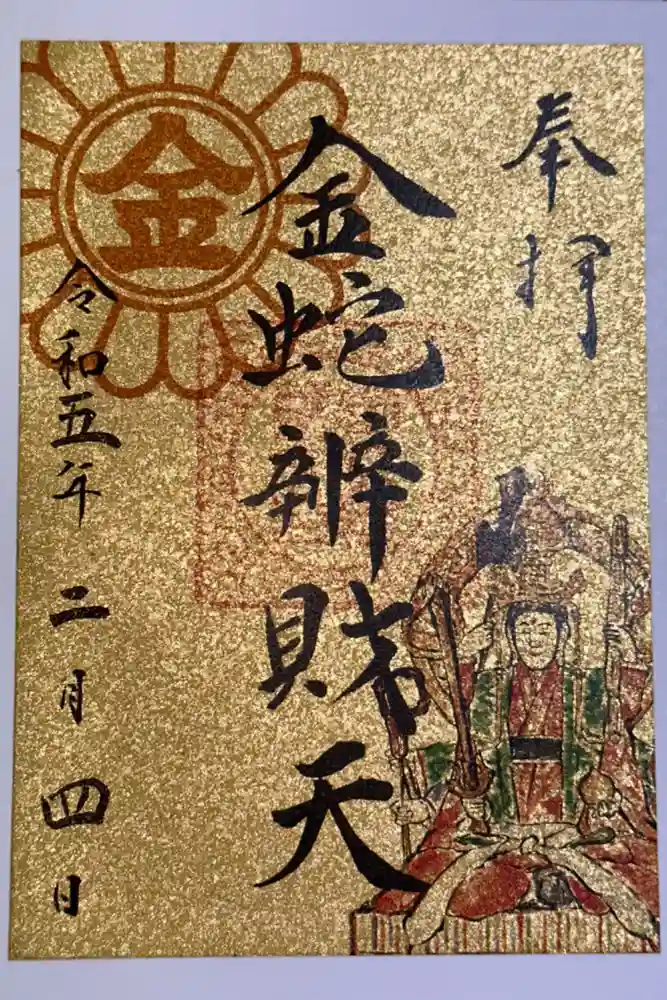 奉拝
金蛇辨財天
令和五年二月四日
金